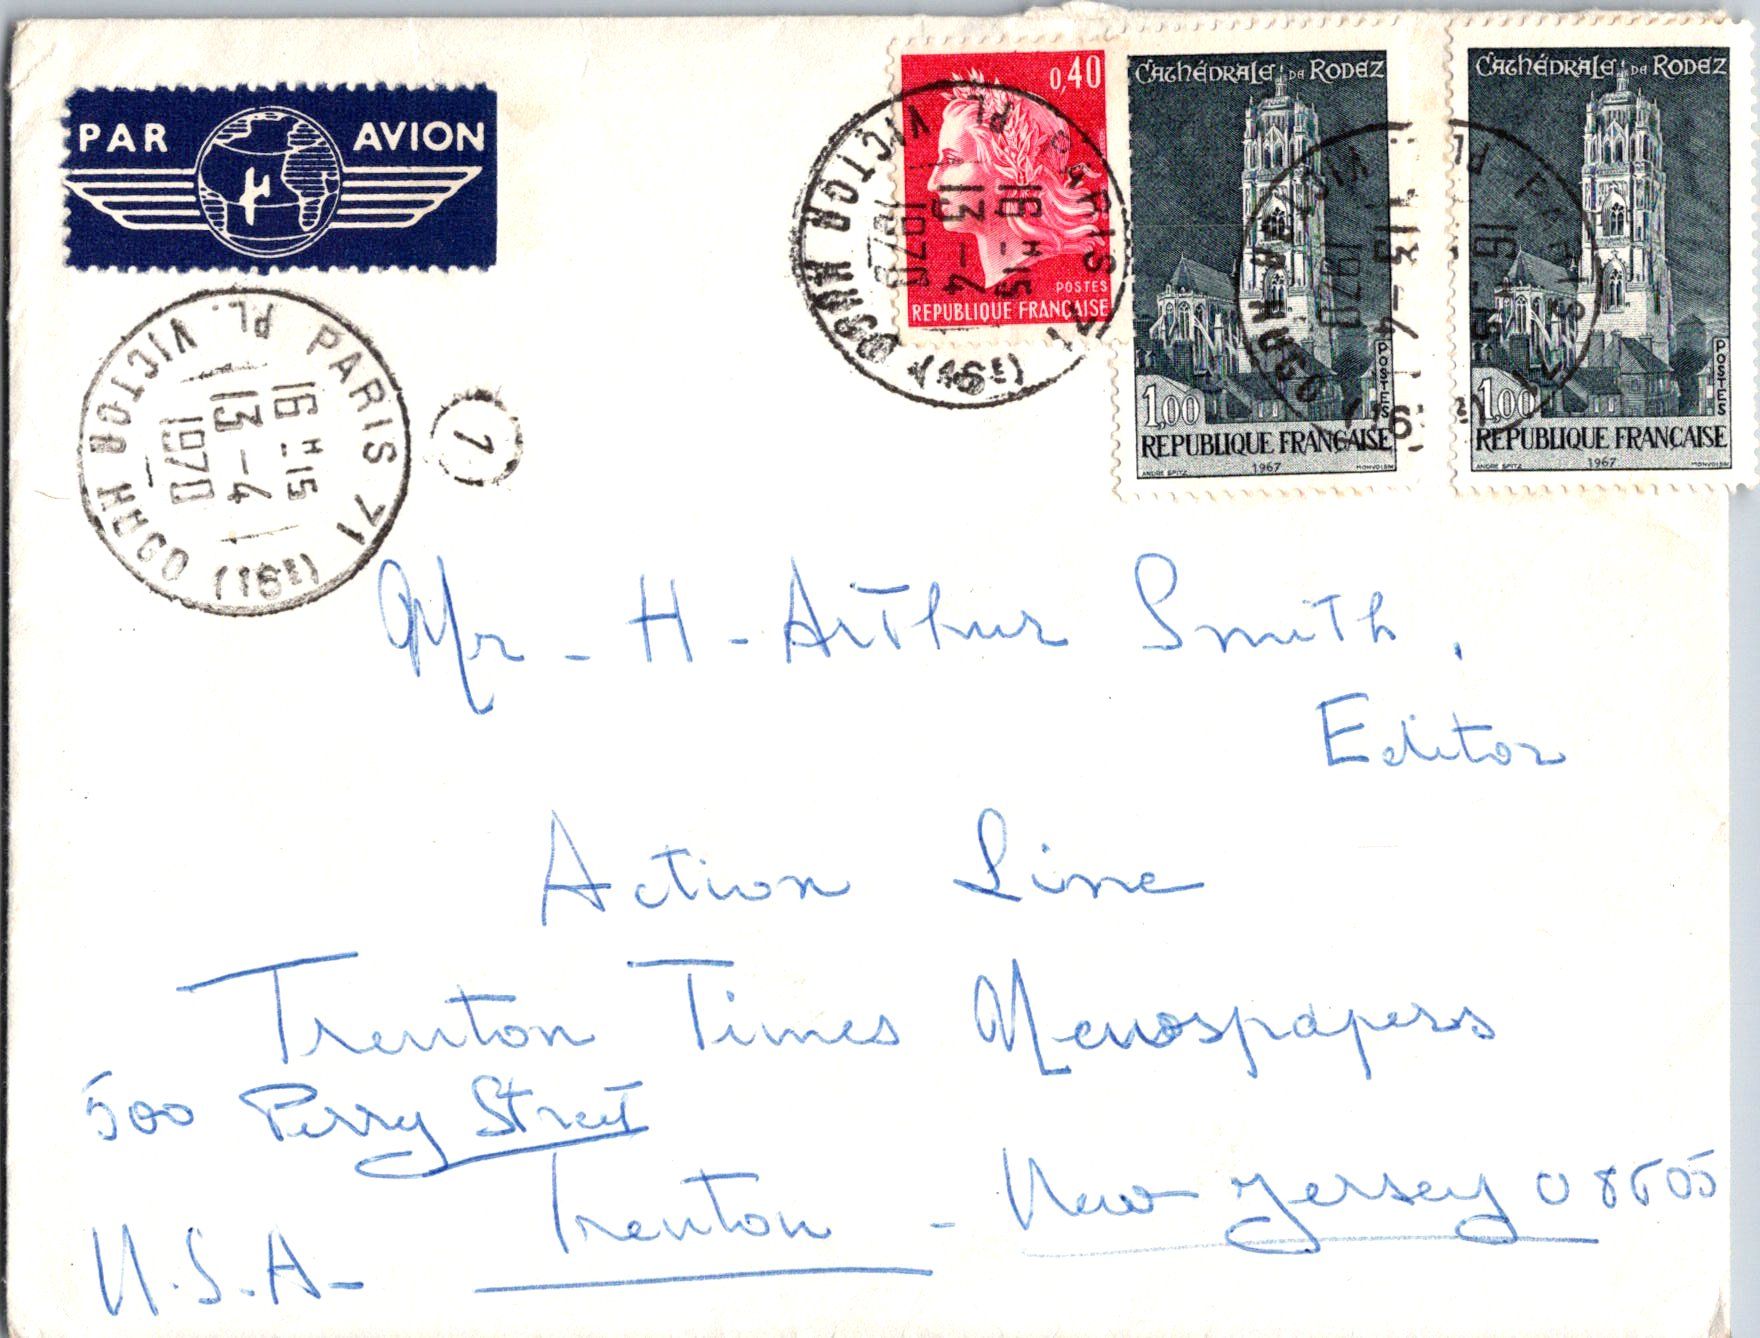 PAR AVION
0,40
POSTES
REPUBLIQUE FRANÇAISE
CATHÉDRALE DE RODEZ
1,00
POSTES
REPUBLIQUE FRANÇAISE
ANDRE SPITZ 1967 MONVOISIN
CATHÉDRALE DE RODEZ
1,00
POSTES
REPUBLIQUE FRANÇAISE
ANDRE SPITZ 1967 MONVOISIN
PARIS 71 PL. VICTOR HUGO (16E)
16 H 15
13 - 4
1970
PARIS 71 PL. VICTOR HUGO (16E)
16 H 15
13 - 4
1970
PARIS 71 PL. VICTOR HUGO (16E)
16 H 15
13 - 4
1970
7
Mr - H - Arthur Smith,
Editor
Action Line
Trenton Times Newspapers
500 Perry Street
Trenton - New Jersey 08605
U.S.A-